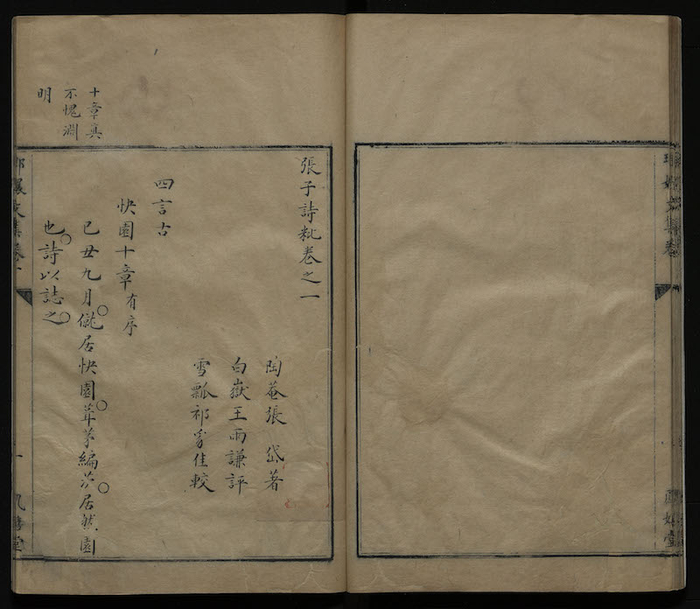 張子詩粃卷之一
陶菴張岱著
白嶽王雨謙評
雪瓢祁豸佳較
四言古
快園十章有序
己丑九月僦居快園葺茅編茨居然園
也詩以誌之
十章真
不愧淵
明